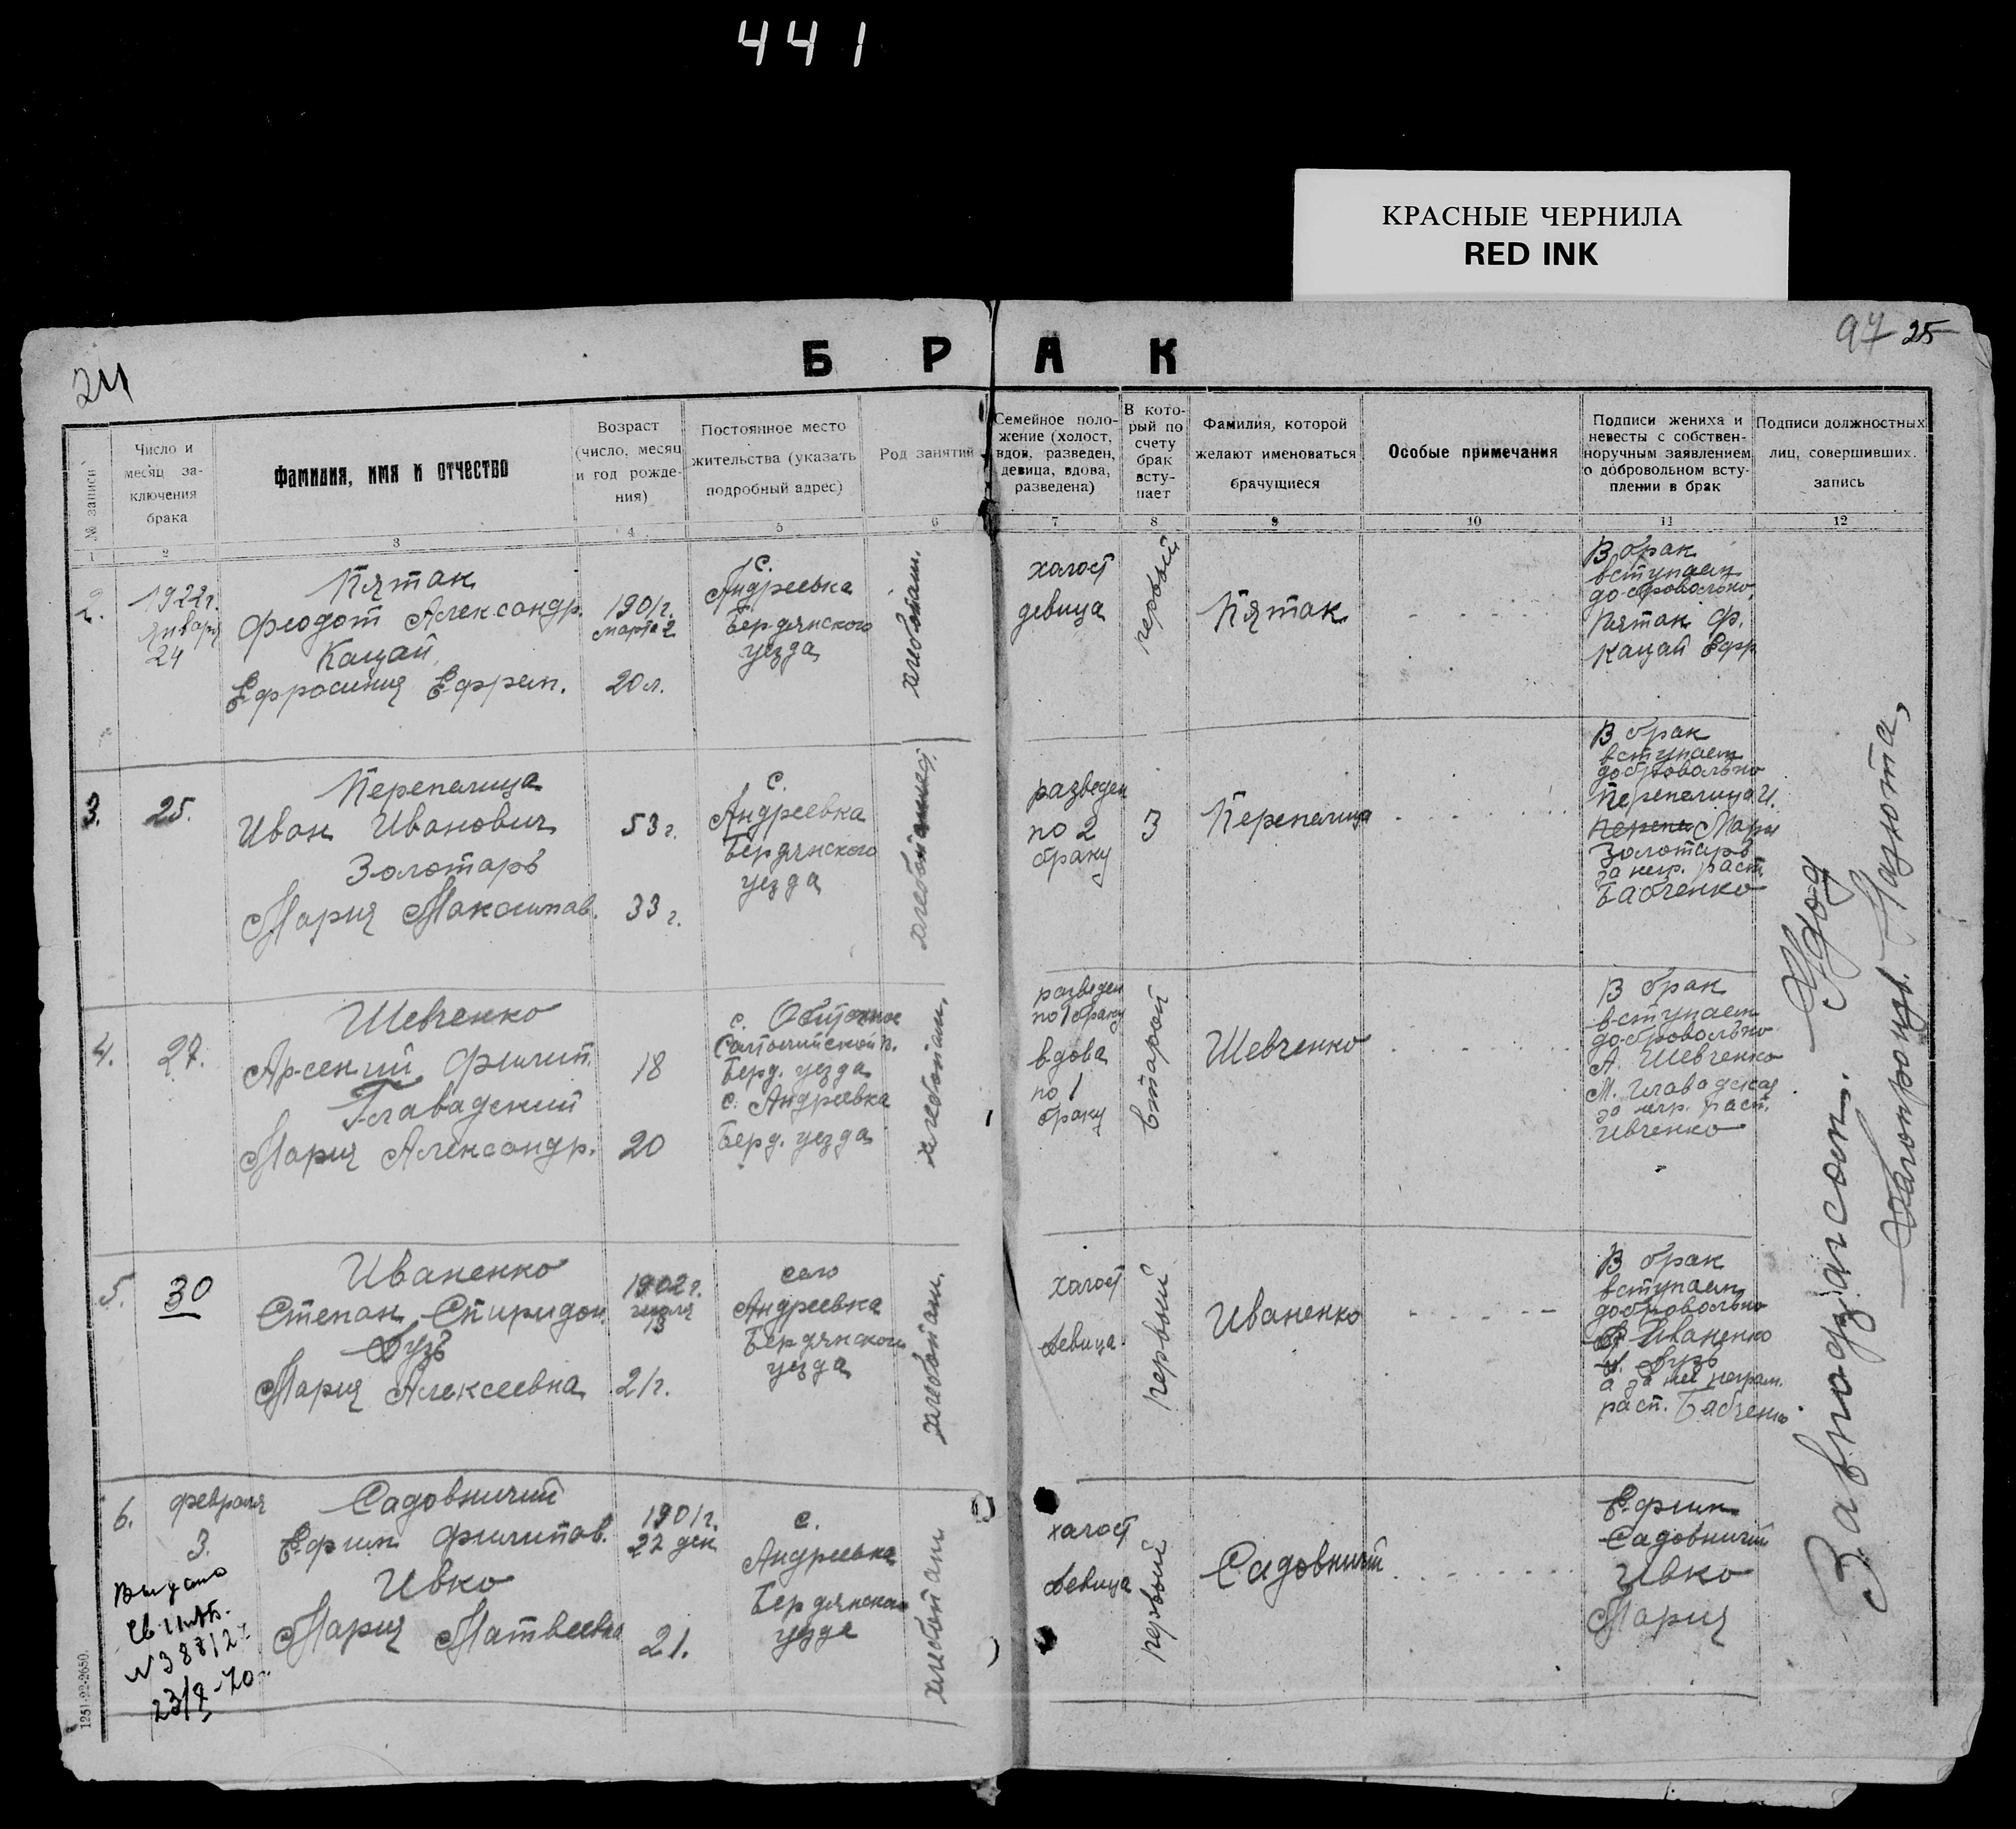 441
КРАСНЫЕ ЧЕРНИЛА
RED INK
24
БРАК
97 25
№ записи
Число и месяц заключения брака
Фамилия, имя и отчество
Возраст (число, месяц и год рождения)
Постоянное место жительства (указать подробный адрес)
Род занятий
Семейное положение (холост, вдов, разведен, девица, вдова, разведена)
В который по счету брак вступает
Фамилия, которой желают именоваться брачущиеся
Особые примечания
Подписи жениха и невесты с собственноручным заявлением о добровольном вступлении в брак
Подписи должностных лиц, совершивших запись
1 2 3 4 5 6 7 8 9 10 11 12
2.
1922г.
января
24
Пятак
Феодот Александр.
Кацай
Ефросиния Ефрем.
1901г.
марта 2
20 л.
с.
Андреевка
Бердянского
уезда
хлебопаш.
халост
девица
первый
Пятак
В брак
вступаем
добровольно
Пятак Ф.
Кацай Ефр
3.
25.
Перепелица
Иван Иванович
Золотарь
Мария Максимов.
53 г.
33 г.
с.
Андреевка
Бердянского
уезда
разведен
по 2
браку
3
Перепелица
В брак
вступаем
добровольно
Перепелица И.
Перепе Мария
Золотарь
за негр. расп.
Бабченко
4.
27.
Шевченко
Арсений Филип.
Главадский
Мария Александр.
18
20
с. Обиточное
Берд. уезда
с. Андреевка
Берд. уезда
хлебопаш.
разведен
по 1 браку
вдова
по 1
браку
вторай
Шевченко
В брак
вступаем
добровольно
А. Шевченко
М. Главадская
за негр. расп.
Ивченко
5.
30
Иваненко
Степан Спиридон.
Бузь
Мария Алексеевна
1902г.
июля
21г.
село
Андреевка
Бердянского
уезда
хлебопаш.
халост
девица
первый
Иваненко
В брак
вступаем
добровольно
Иваненко
М. Бузь
а за нее неграм.
расп. Бабченко
6.
февраля
3.
Садовничий
Ефим Филипов.
Ивко
Мария Матвеевна
1901г.
27 дек
21.
с.
Андреевка
Бердянского
уезда
хлебопаш
халост
девица
первый
Садовничий
Ефим
Садовничий
Ивко
Мария
Выдано
23/X-70
Завподзагсом. Удод
Делопроизв. Мазюта
1251-22-2650.